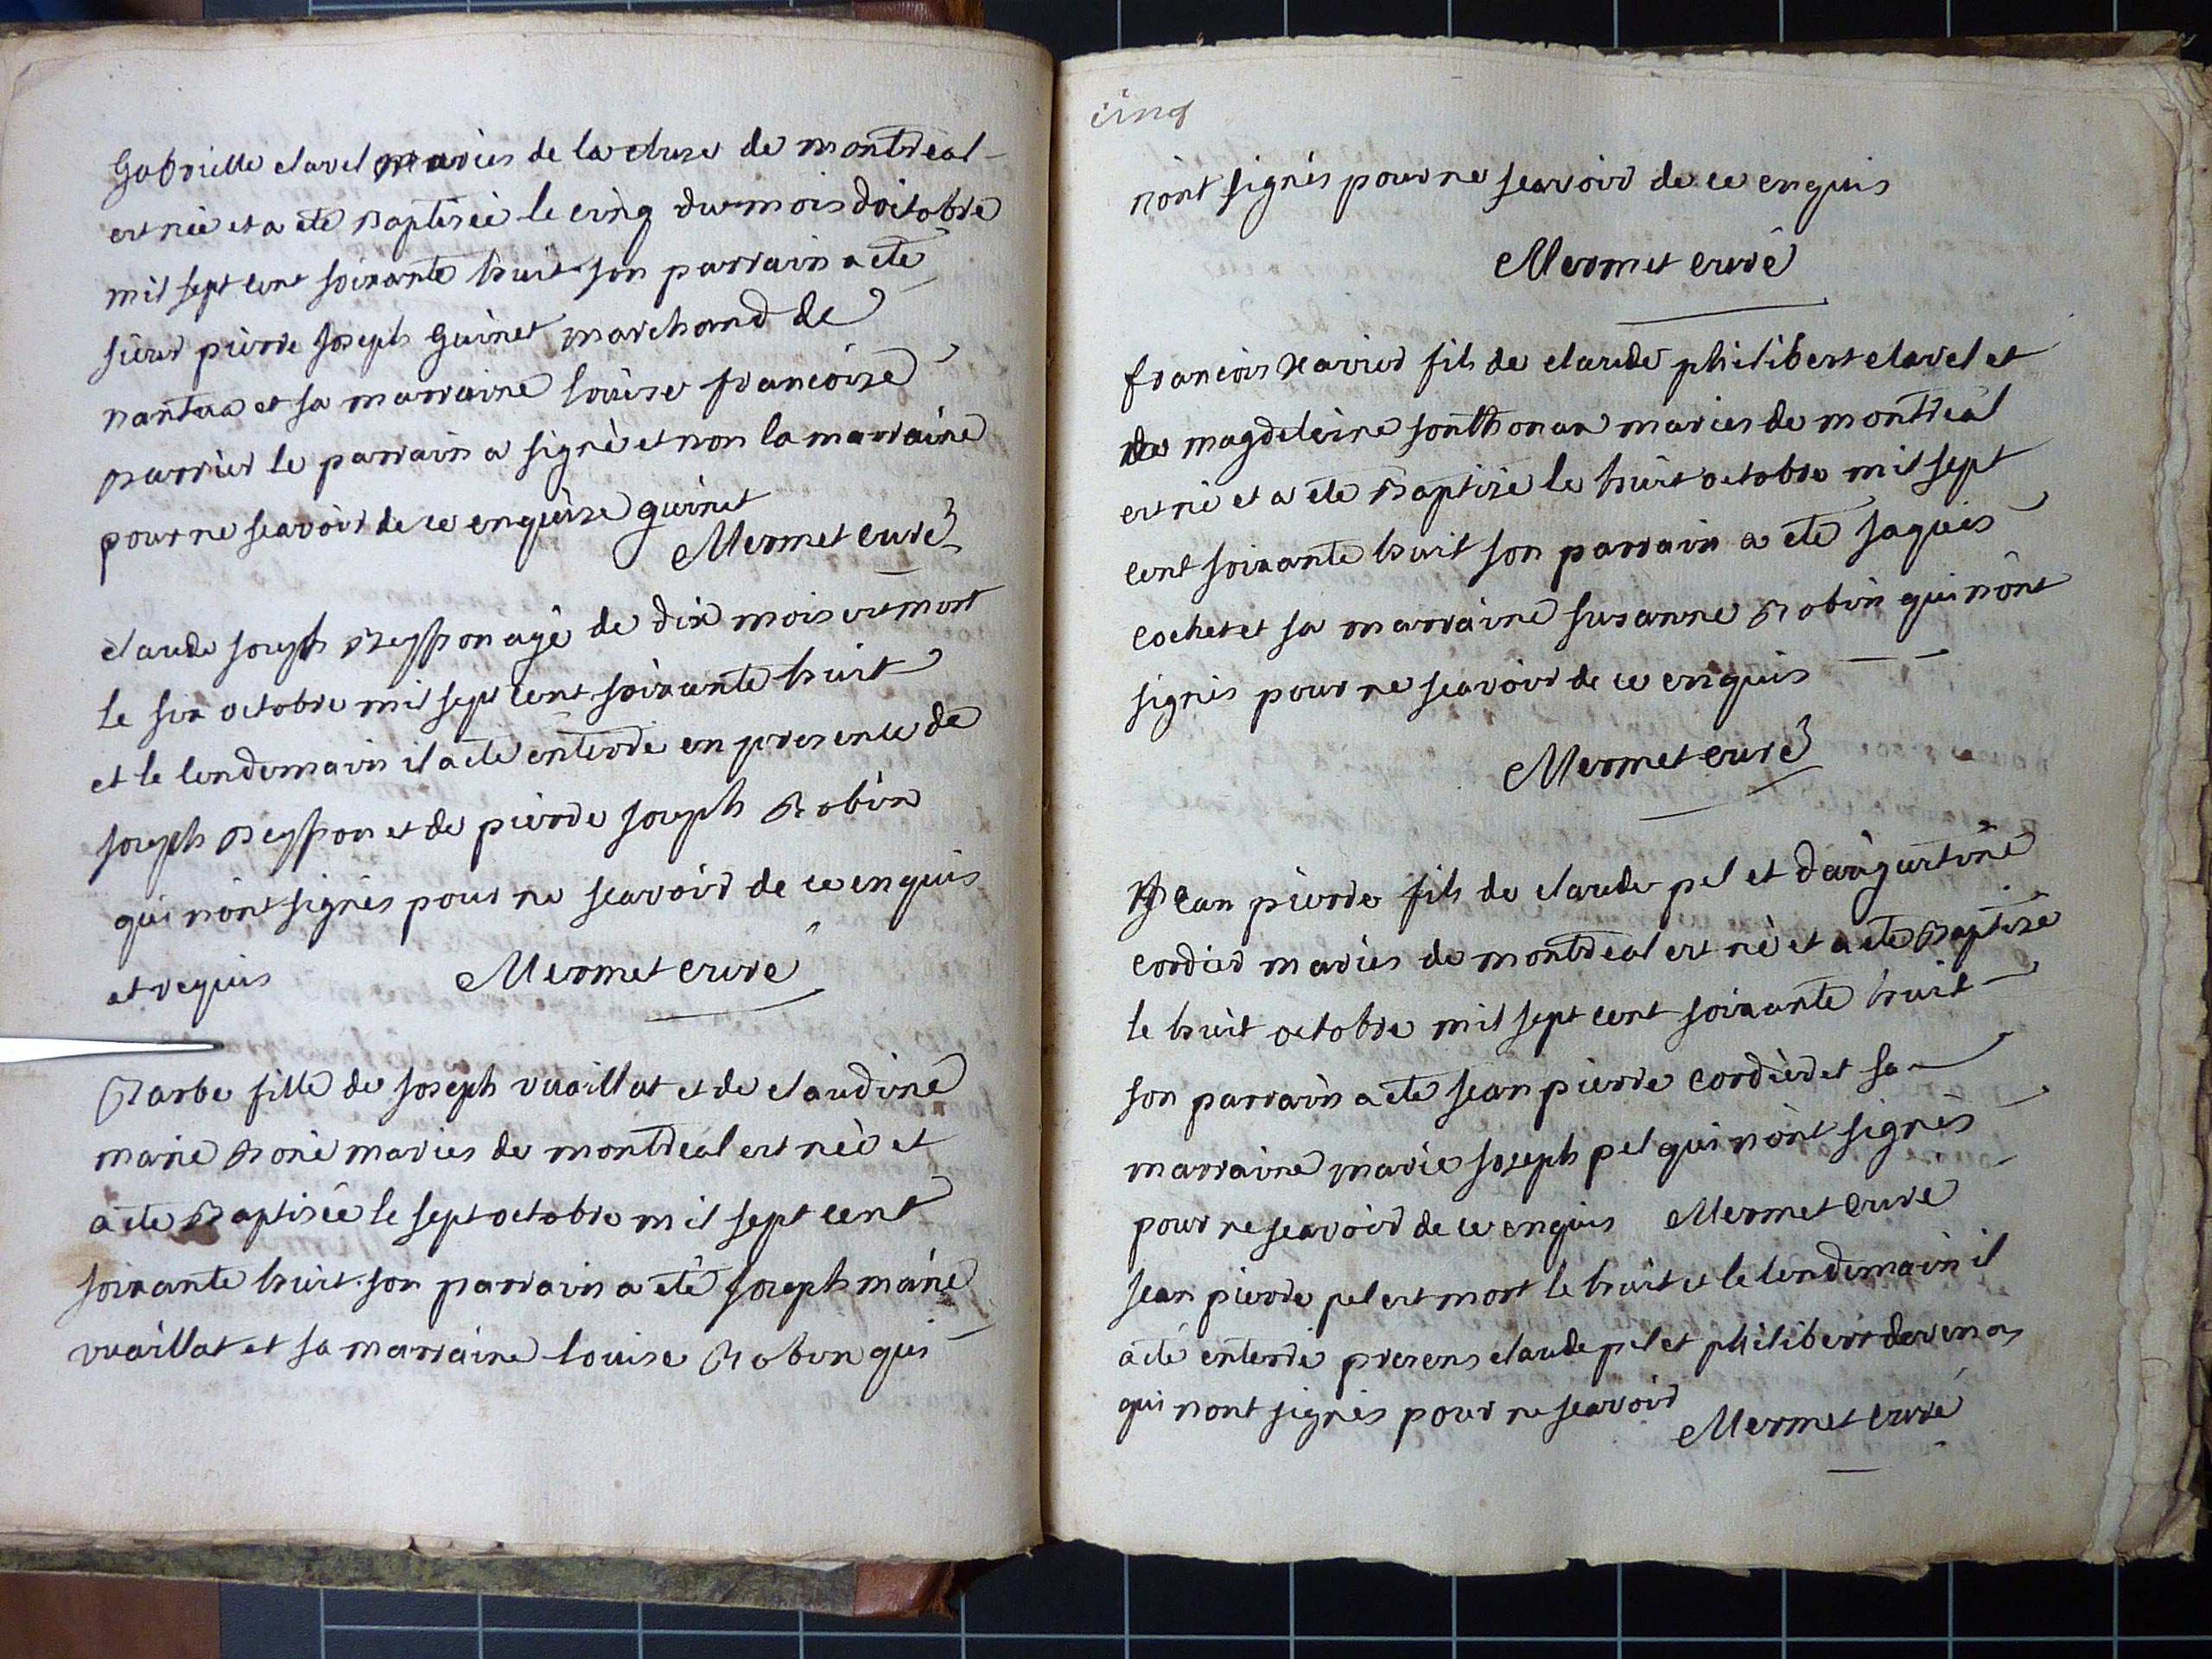 Gabrielle clavel mariés de la cluse de montreal
est née et a eté Baptisée le cinq du mois doctobre
mil sept cent soixante huit son parrain a eté
sieur pierre joseph Guinet marchand de
nantua et sa marraine louise francoise
Barrier le parrain a signé et non la marraine
pour ne scavoir de ce enquise guinet
Mermet curé
claude joseph Beysson agé de dix mois est mort
le six octobre mil sept cent soixante huit
et le lendemain il a eté enterré en presence de
joseph Beysson et de pierre joseph Robin
qui nont signés pour ne scavoir de ce enquis
et requis Mermet curé
Barbe fille de joseph vuaillat et de claudine
marie Boné mariés de montreal est née et
a eté Baptisée le sept octobre mil sept cent
soixante huit son parrain a eté joseph marie
vuaillat et sa marraine louise Robin qui
cinq
nont signés pour ne scavoir de ce enquis
Mermet curé
francois Xavier fils de claude philibert clavel et
de magdeleine sonthonax mariés de montreal
est né et a eté Baptisé le huit octobre mil sept
cent soixante huit son parrain a eté jaques
cochet et sa marraine susanne Robin qui nont
signés pour ne scavoir de ce enquis
Mermet curé
Jean pierre fils de claude pel et daugustine
cordier mariés de montreal est né et a eté Baptisé
le huit octobre mil sept cent soixante huit
son parrain a eté jean pierre cordier et sa
marraine marie joseph pel qui nont signés
pour ne scavoir de ce enquis Mermet curé
jean pierre pel est mort le huit et le lendemain il
a eté enterré presens claude pel et philibert
qui nont signés pour ne scavoir
Mermet curé